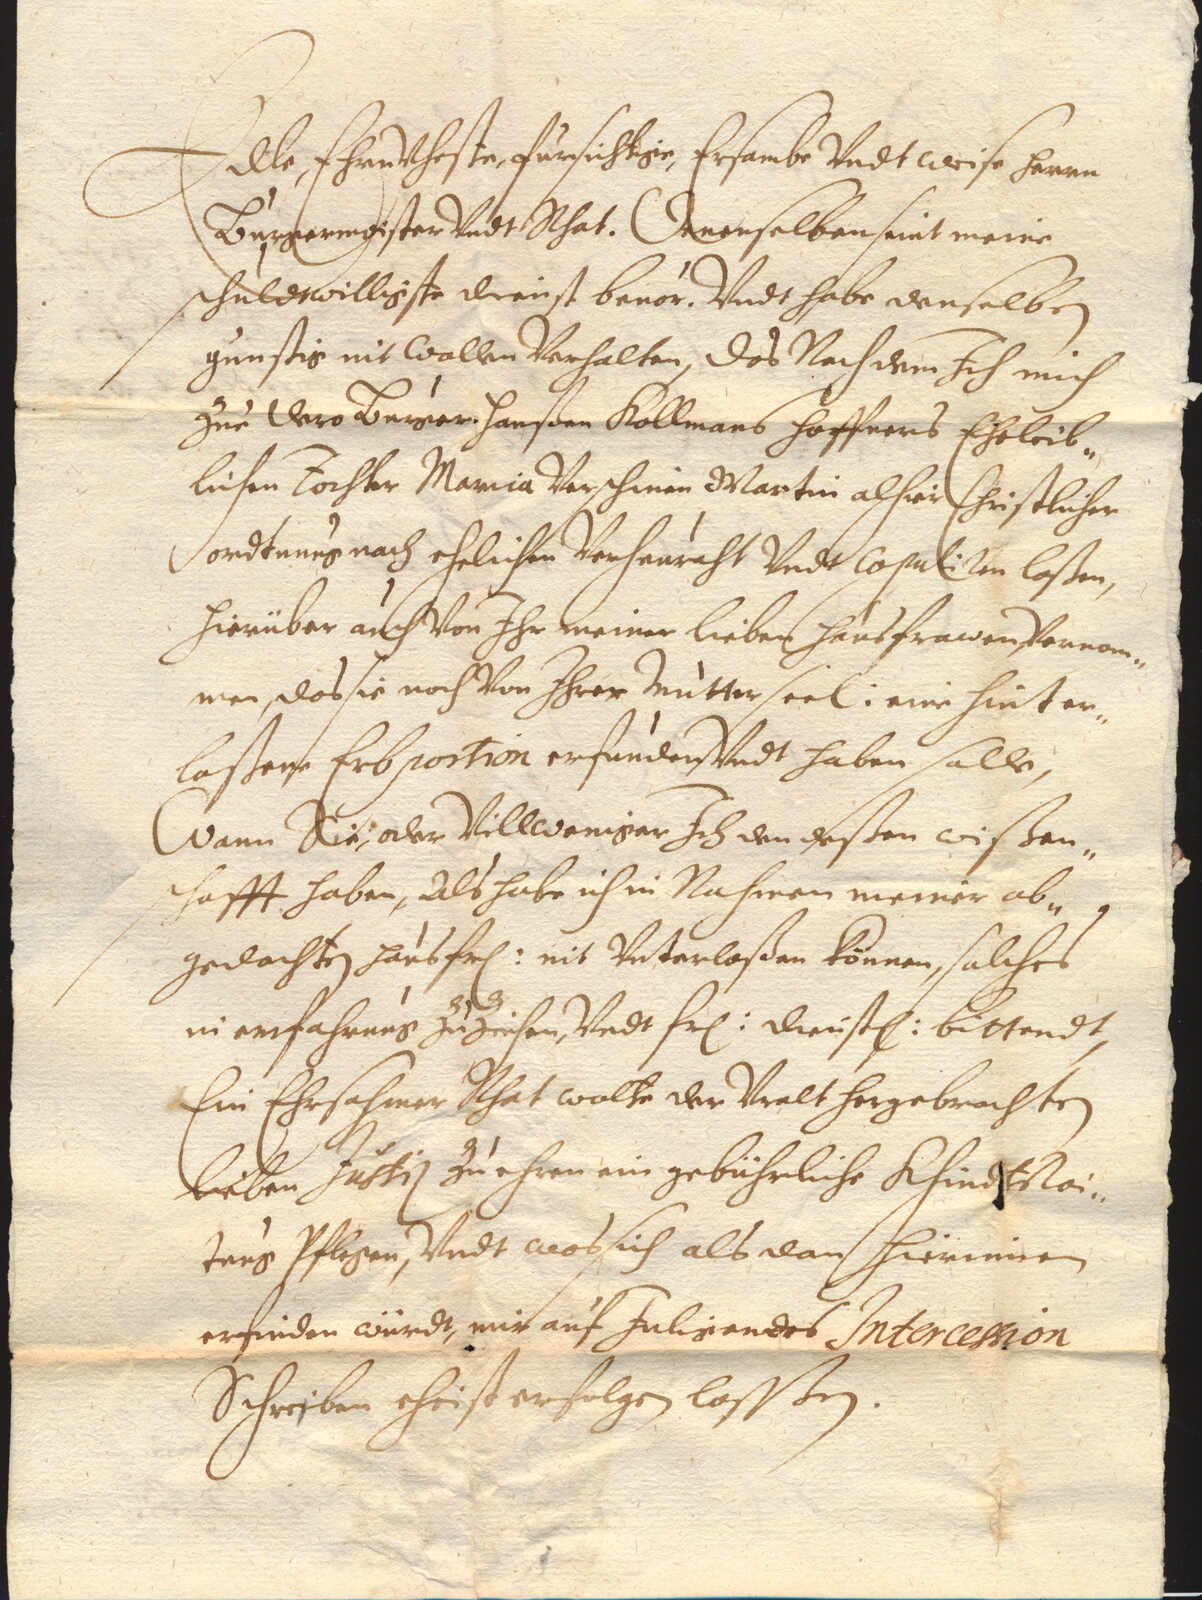 Edle, Ehrnveste, fürsichtige, Ersambe Vndt weise herrn
Bürgermeister Vndt Rhat. Denenselben seint meine
schuldtwilligste dienst beuor. Vndt habe denselben
gunstig nit wollen Verhalten, das Nachdem Ich mich
zue dero Burger hansen Kollmans haffners Eheleib„
lichen Tochter Maria Verschinen Martin alhier Christlicher
ordtnung nach ehelichen Verheuraht Vndt Copuliren laßen,
hierüber auch Von Ihr meiner lieben hausfrawen Vernom„
men, das sie noch Von Ihrer Mutter seel: eine hinter„
laßene Erbportion erfunden Vndt haben solle,
Wann Sie, oder Villweniger Ich den deßen wißen„
schafft haben, Als habe ich in Nahmen meiner ob„
gedachten hausfr: nit Vnterlaßen können, solches
in erfahrung zu ziehen, Vndt fr: dienstl: bittendt,
Ein Ehrsahmer Rhat wolte der Vralt hergebrachten
lieben Justiz zu ehren ein gebührliche Khindt
Pflegen, Vndt was sich als dan hierinnen
erfinden würdt, mir auf Intercession
Schreiben ehrist erfolgen lassen.